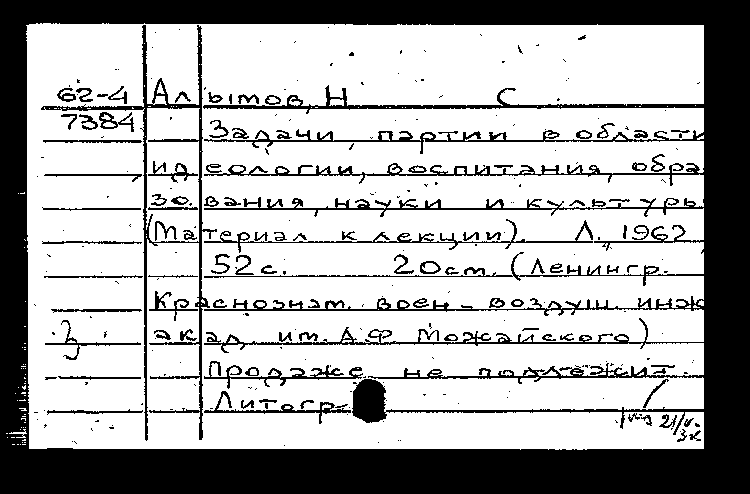 62-4 Алымов, Н С
7384 Задачи партии в области
идеологии, воспитания, обра
зования, науки и культуры
(Материал к лекции). Л., 1962
52с. 20см. (Ленингр.
Краснознам. воен-воздуш. инж
акад им. А.Ф. Можайского)
Продаже не подлежит.
Литогр
21/V